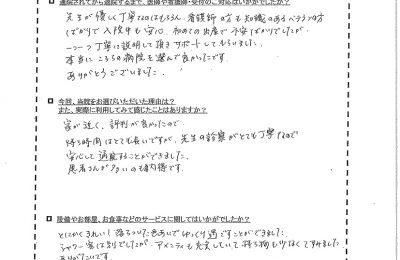 通院されてから退院するまで、医師や看護師・受付のご対応はいかがでしたか？
先生が優しく丁寧なのはもちろん、看護師の方も知識のあるベテランの方
ばかりで入院中も安心、初めての出産で不安ばかりでしたが
一つ一つ丁寧に説明して頂きサポートしてもらいました。
本当にこちらの病院を選んで良かったです。
ありがとうございました。
今回、当院をお選びいただいた理由は？
また、実際に利用してみて感じたことはありますか？
家が近く、評判が良かったので。
待ち時間はとても長いですが、先生の診察がとても丁寧なので
安心して通院することができました。
患者さんが多いのも納得です。
設備やお部屋、お食事などのサービスに関してはいかがでしたか？
とにかくきれい！落ちついた色あいでゆっくり過ごすことができました。
シャワー室は別でしたが、アメニティも充実していて持ち物も少なくてすみました。
ありがたいです。